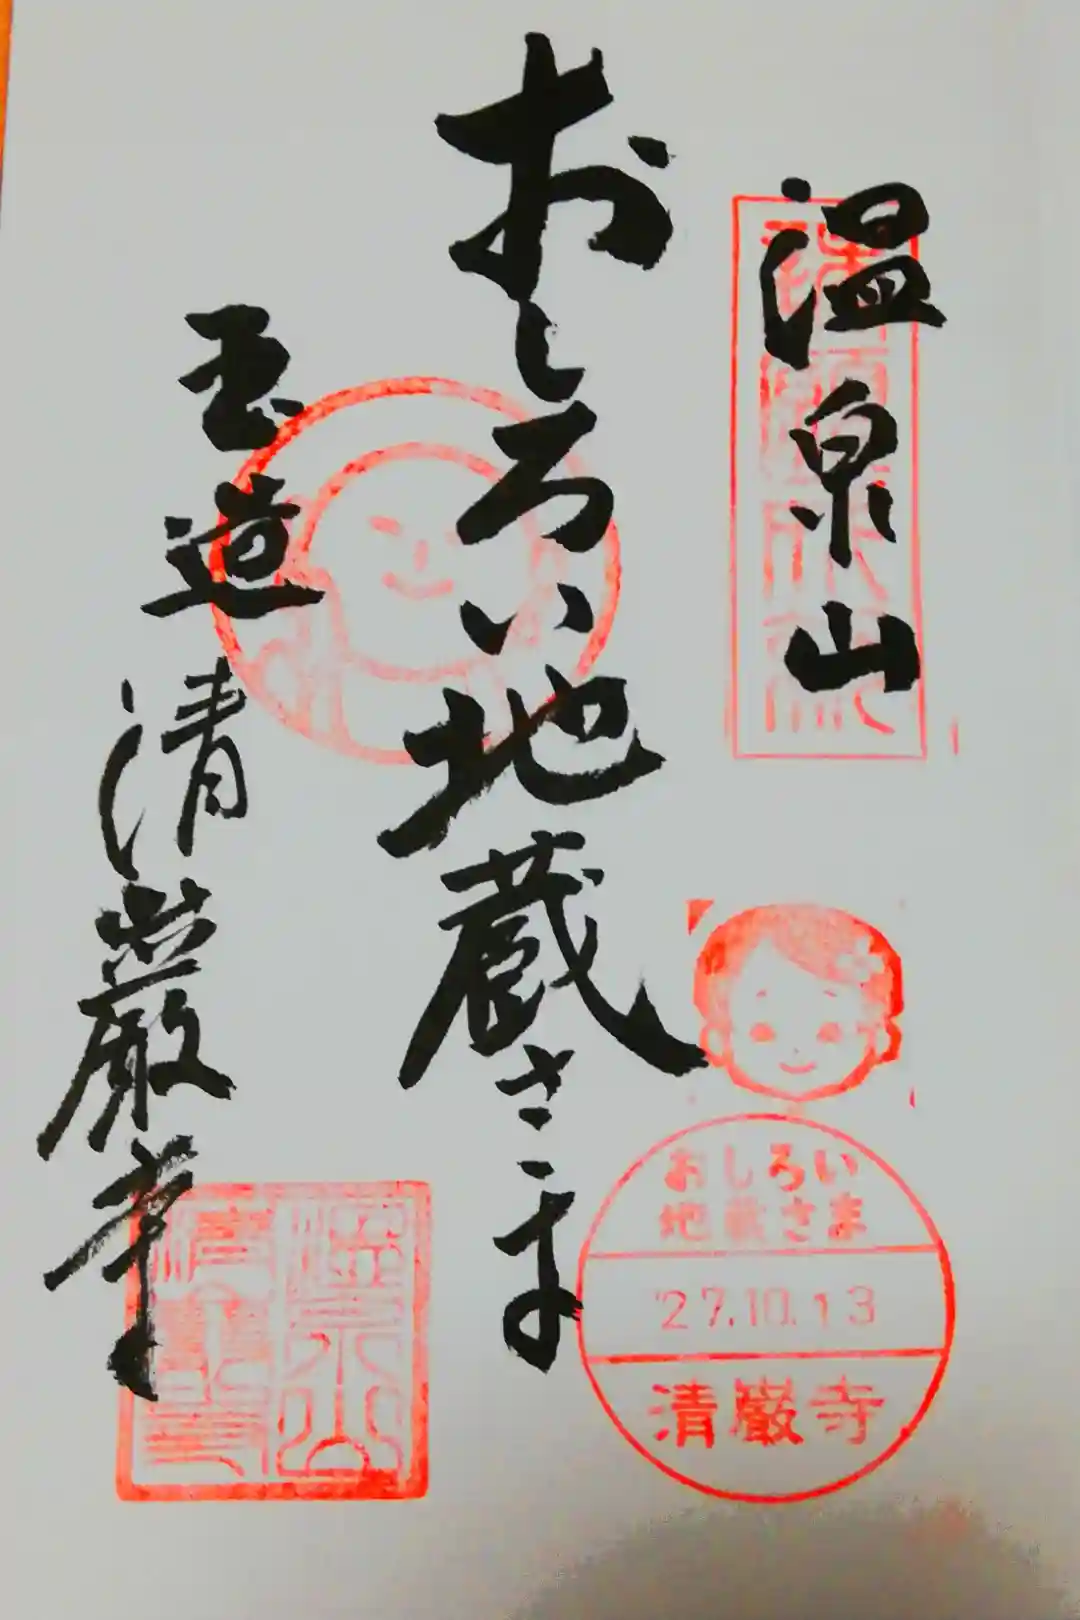 温泉山
おしろい地蔵さま
玉造 清巌寺
おしろい
地蔵さま
27.10.13
清巌寺